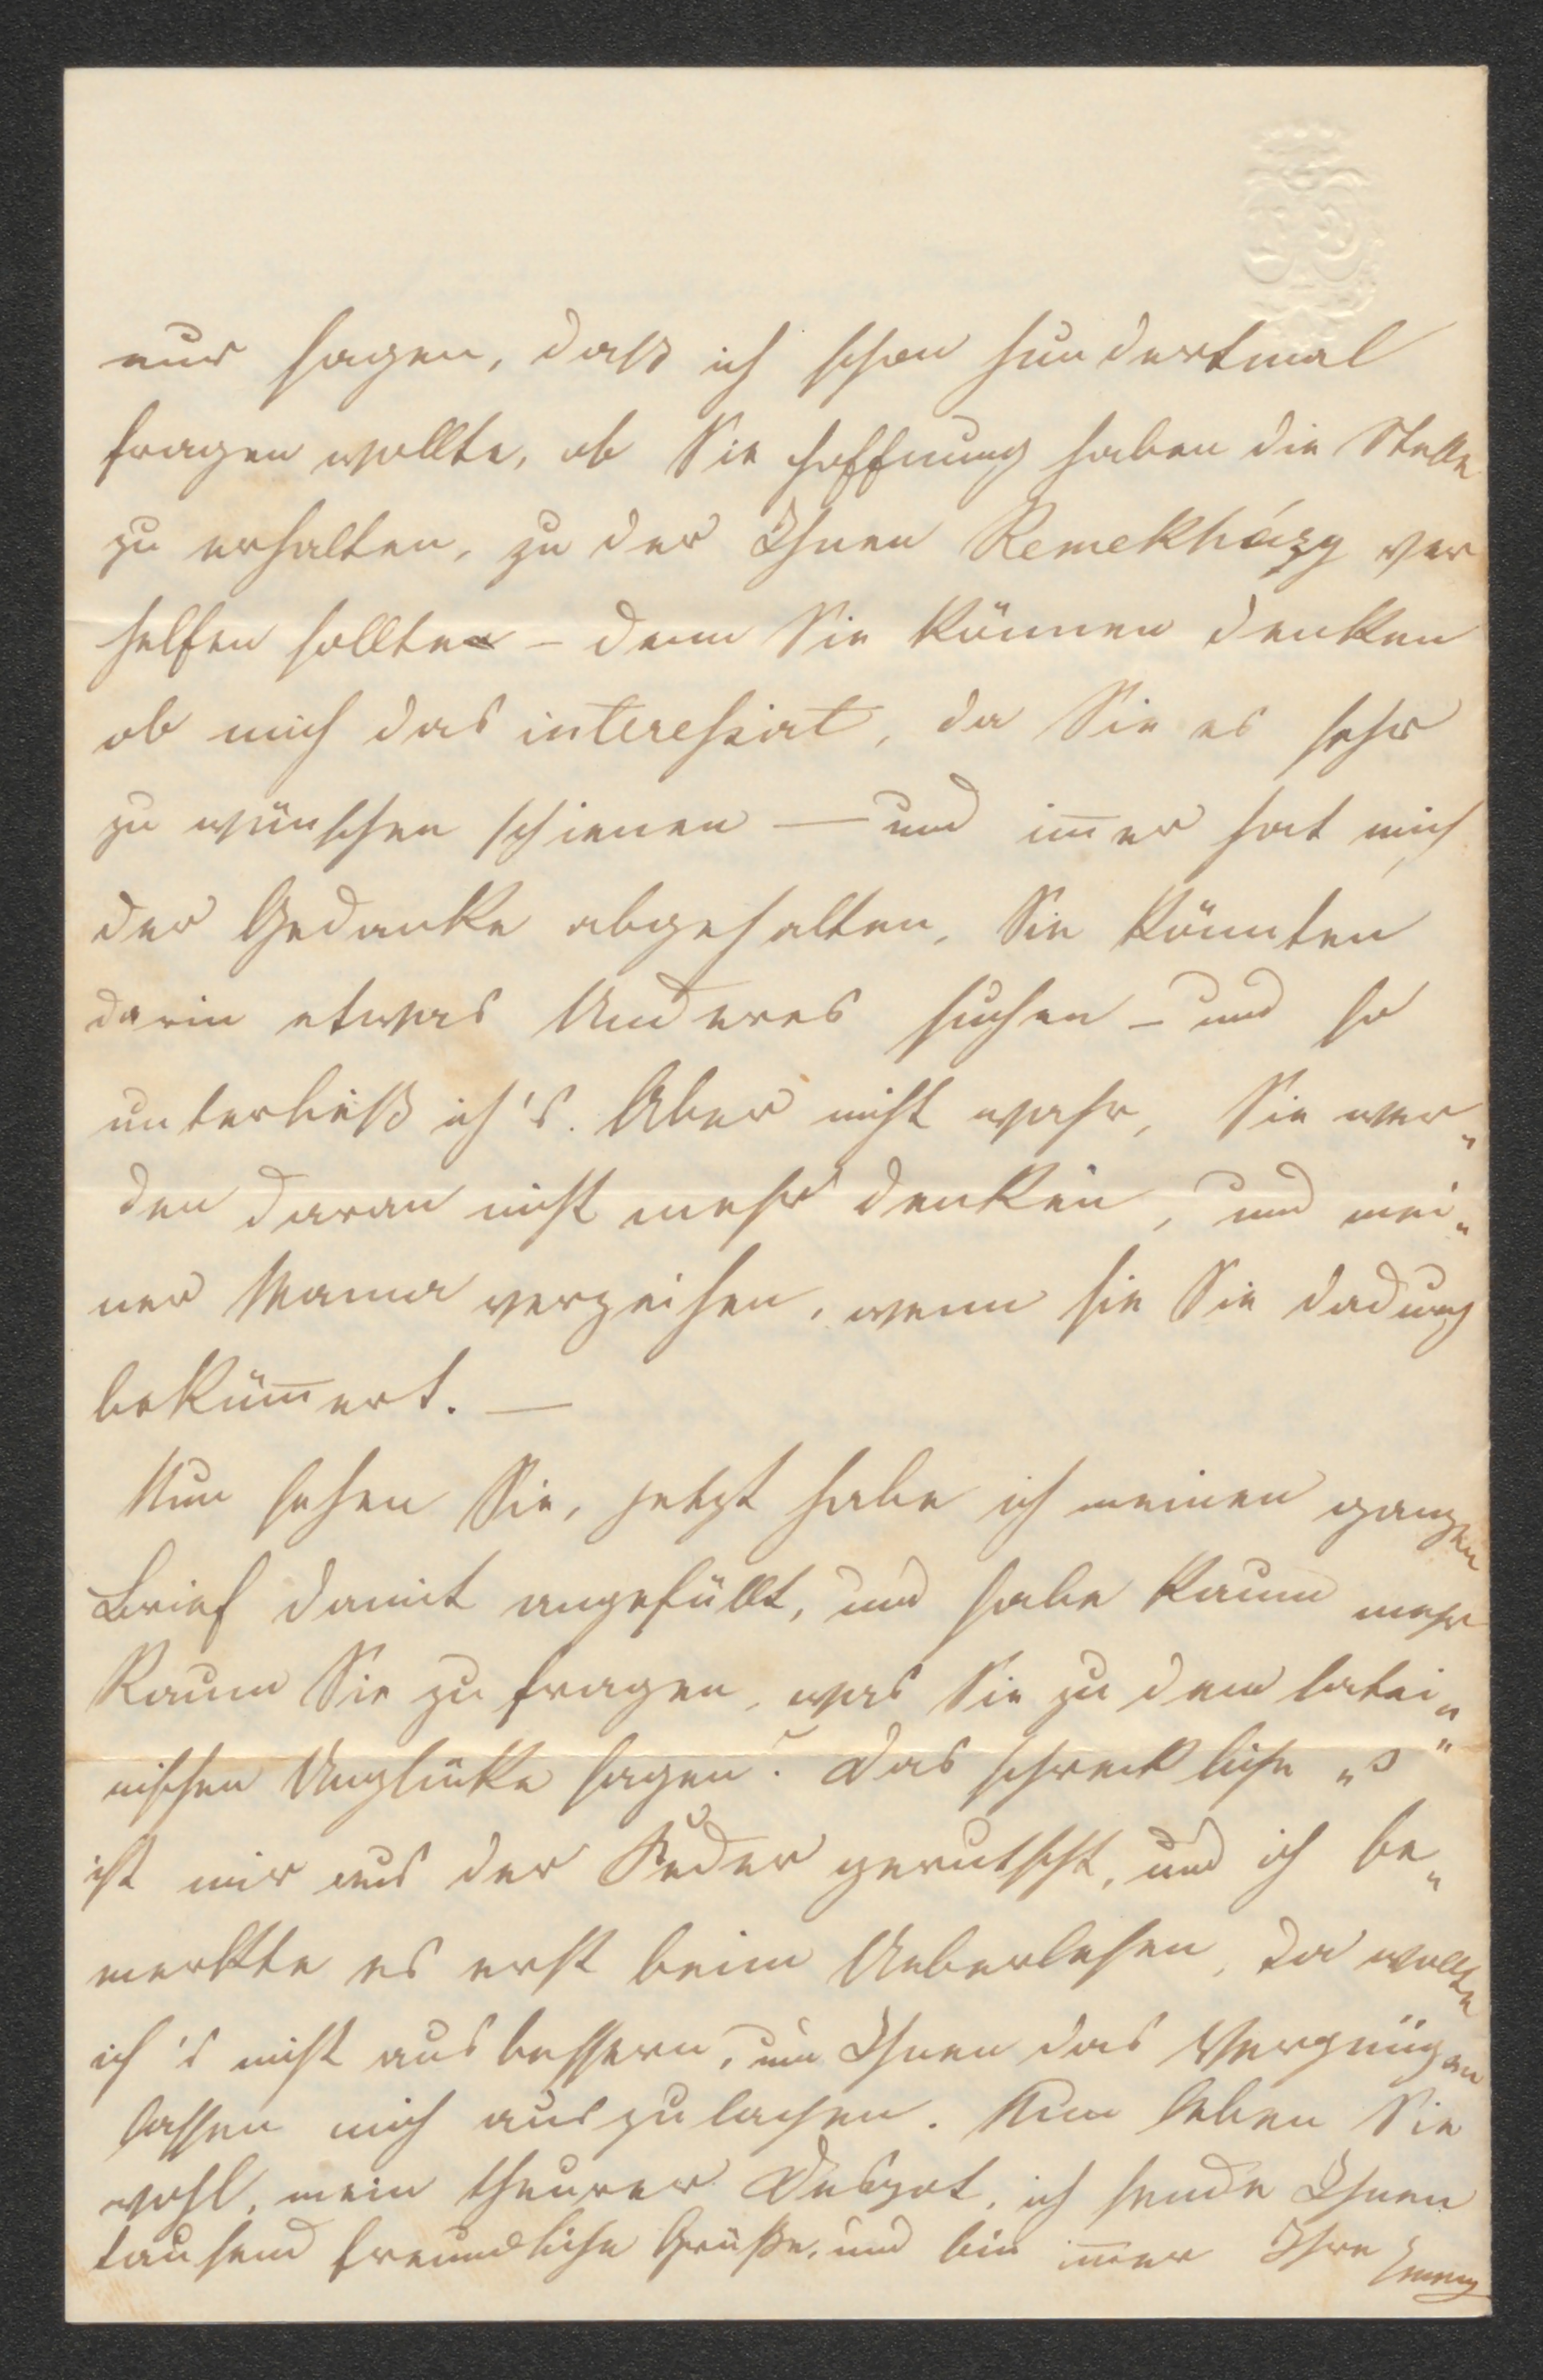 nur sagen, daß ich schon hundertmal
fragen wollte, ob Sie Hoffnung haben die Stelle
zu erhalten, zu der Ihnen Remekházy ver
helfen sollte – denn Sie können denken
ob mich das interessirt, da Sie es sehr
zu wünschen schienen — und im̅er hat mich
der Gedanke abgehalten, Sie könnten
darin etwas Anderes suchen – und so
unterließ ich's. Aber nicht wahr, Sie wer„
den daran nicht mehr denken, und mei„
ner Mama verzeihen, wenn sie Sie dadurch
beküm̅ert. —
Nun sehen Sie, jetzt habe ich meinen ganzen
Brief damit angefüllt, und habe kaum mehr
Raum Sie zu fragen, was Sie zu dem latei„
nischen Unglücke sagen? Das schreckliche „s"
ist mir aus der Feder gerutscht, und ich be„
merkte es erst beim Ueberlesen, da wollte
ich 's nicht ausbessern, um Ihnen das Vergnügen
lassen mich auszulachen. Nun leben Sie
wohl, mein theurer Despot, ich sende Ihnen
tausend freundliche Grüße, und bin im̅er Ihre Emmy